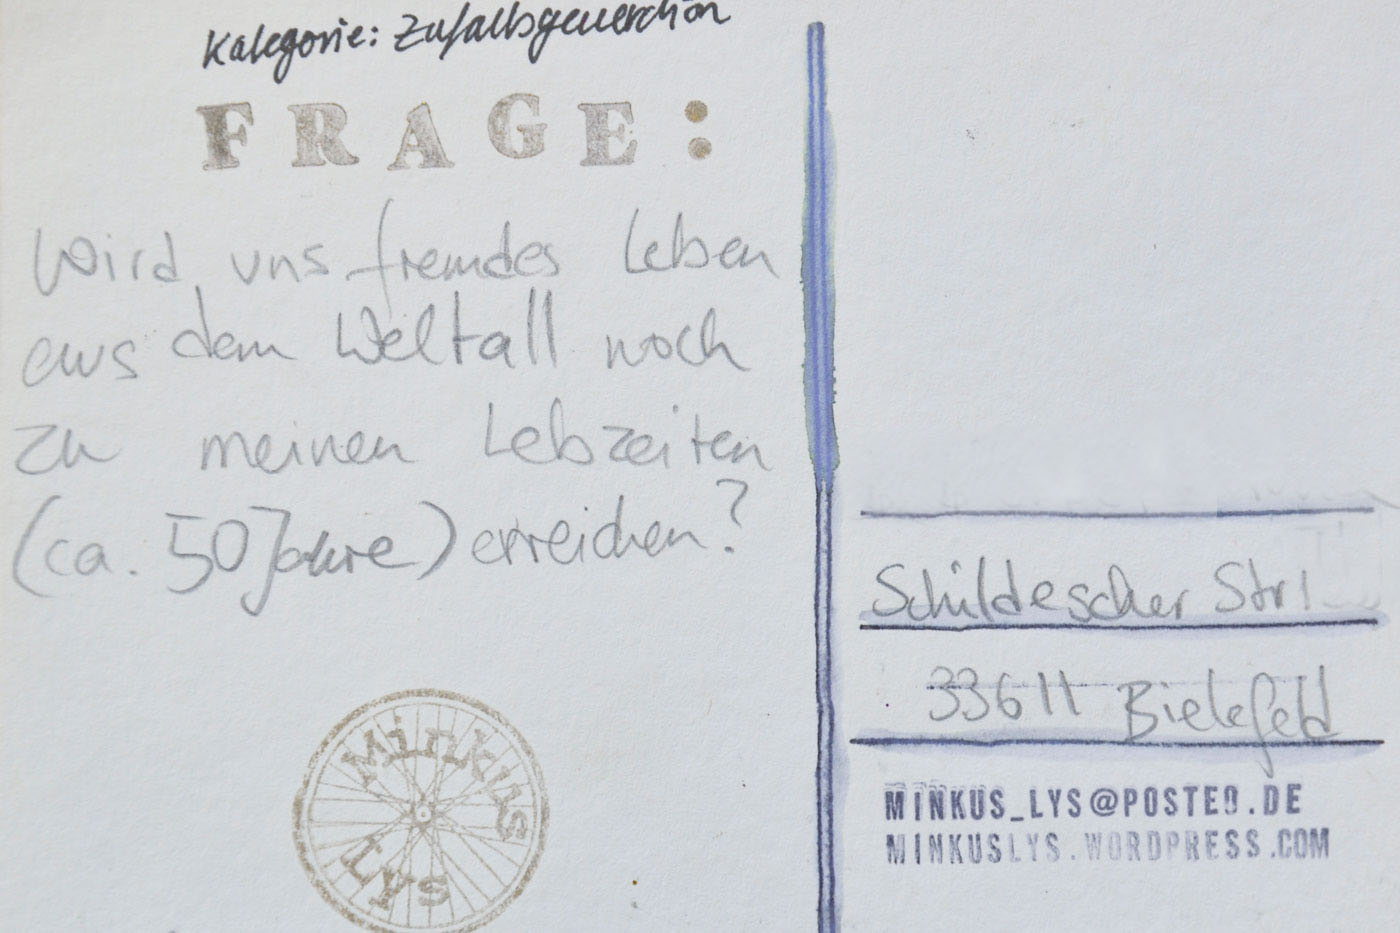 Kategorie: Zufallsgeneration
FRAGE:
Wird uns fremdes Leben
aus dem Weltall noch
zu meinen Lebzeiten
(ca. 50 Jahre) erreichen?
Minkus
Lys
Schildescher Str
33611 Bielefeld
MINKUS_LYS@POSTEO.DE
MINKUSLYS.WORDPRESS.COM